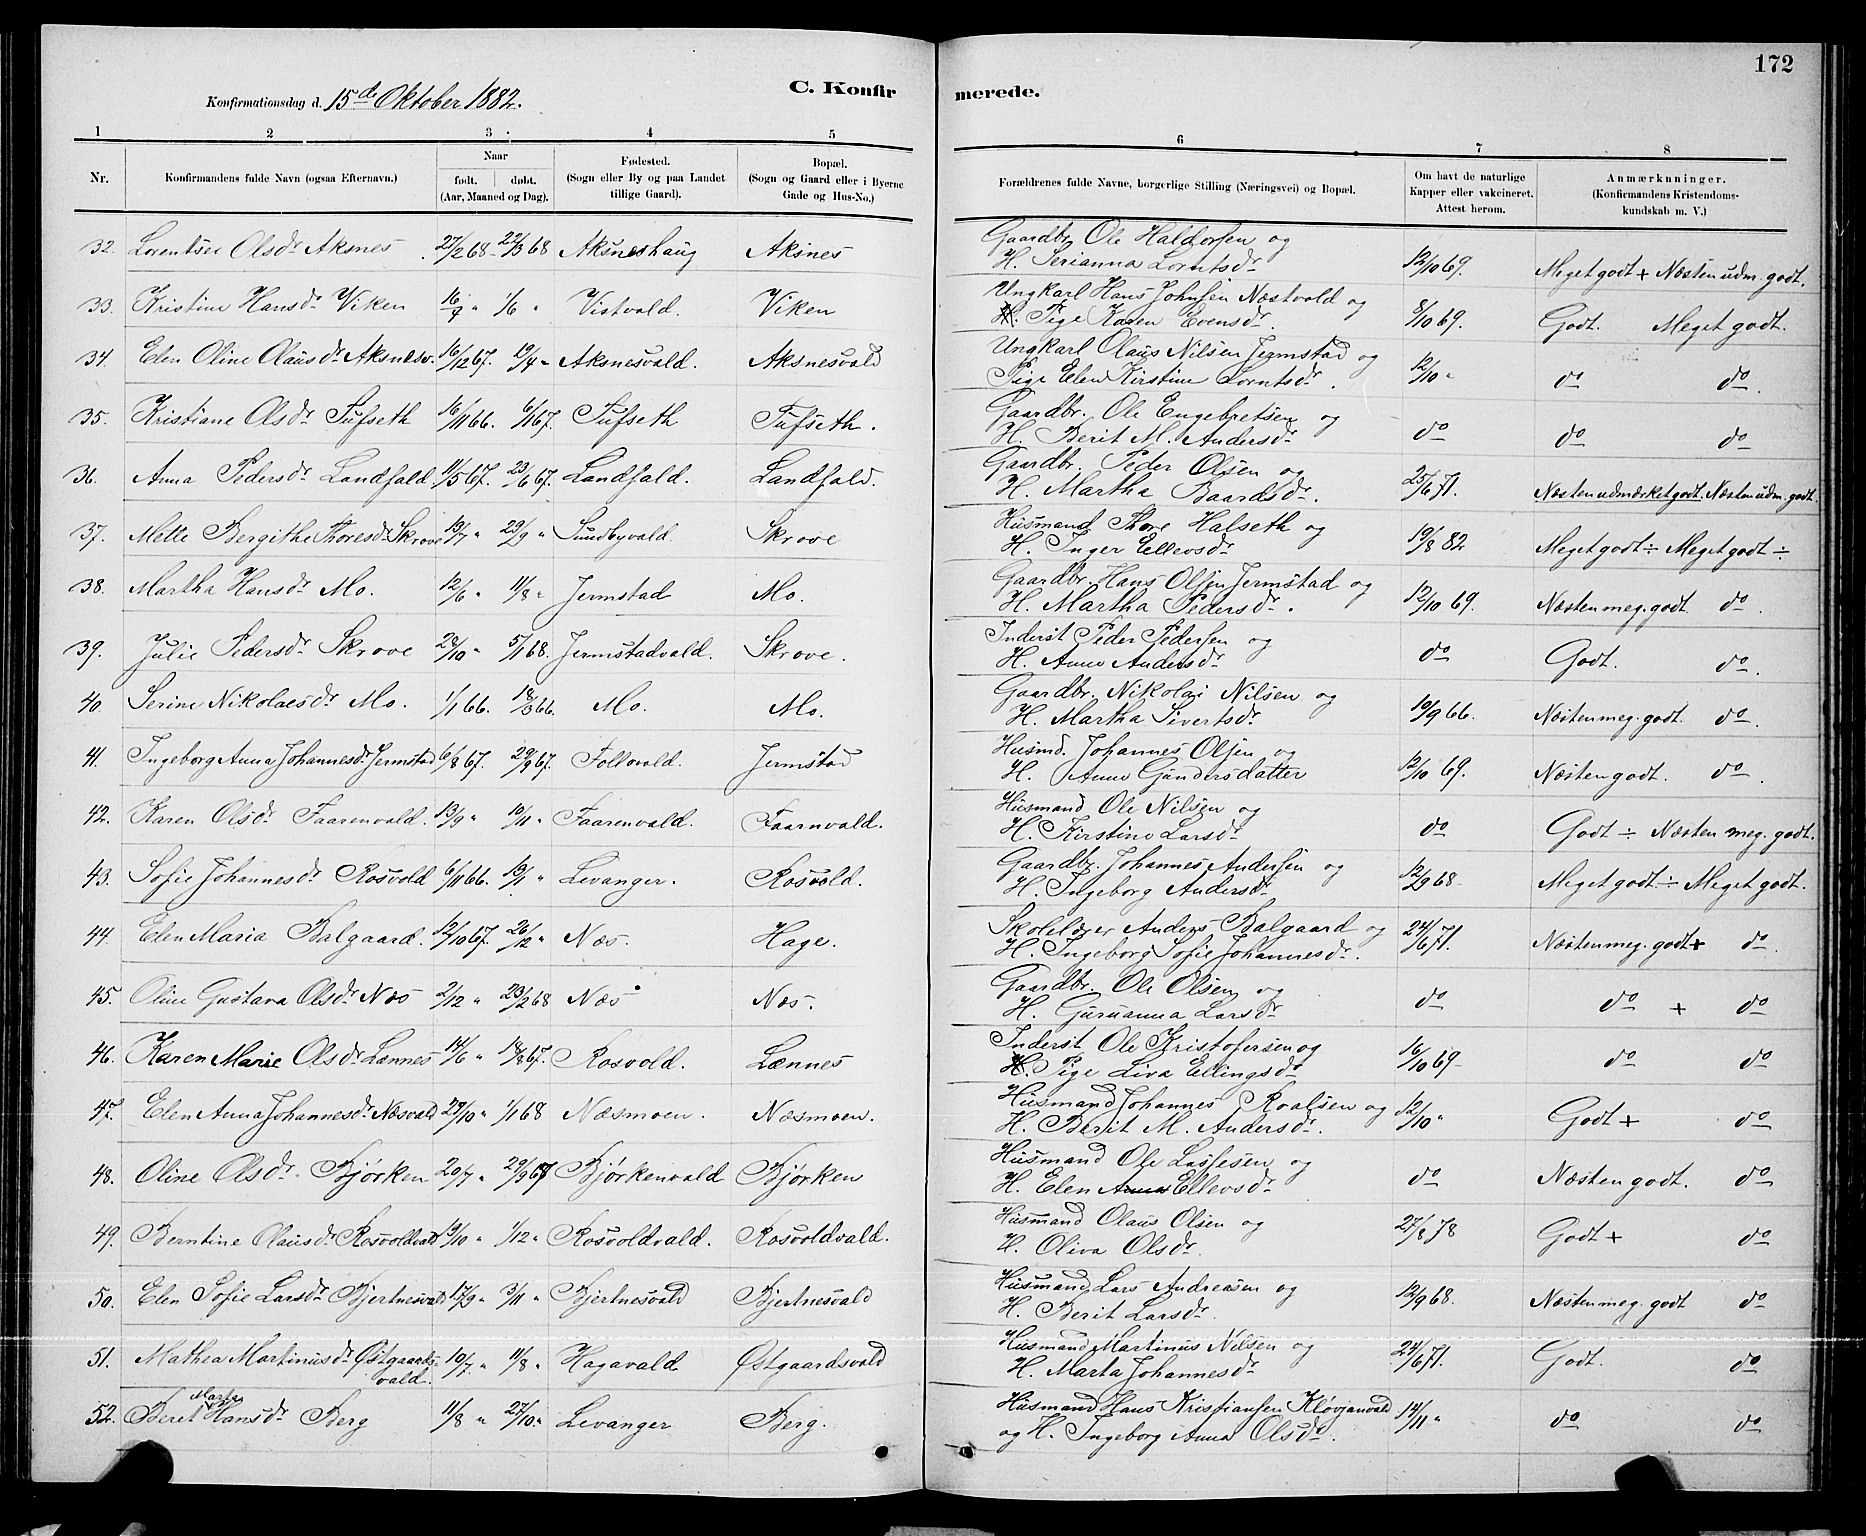 172
Konfirmationsdag d. 15de Oktober 1882.
C. Konfirmerede.
1 2 3 4 5 6 7 8
Nr. | Konfirmandens fulde Navn (ogsaa Efternavn.) | Naar født. døbt. (Aar, Maaned og Dag). | Fødested. (Sogn eller By og paa Landet tillige Gaard). | Bopæl. (Sogn og Gaard eller i Byerne Gade og Hus-No.) | Forældrenes fulde Navne, borgerlige Stilling (Næringsvei) og Bopæl. | Om havt de naturlige Kapper eller vakcineret. Attest herom. | Anmærkninger. (Konfirmandens Kristendomskundskab m. V.)
32. Lorentse Olsdr Aksnes 27/2 68 22/3 68 Aksneshaug Aksnes Gaardbr. Ole Haldorsen og H. Serianna Lorntsdr 12/10 69. Meget godt + Næsten udm. godt.
33. Kristine Hansdr Viken 16/4 " 1/6 " Vistvald. Viken Ungkarl Hans Johnsen Næstvold og Pige Karen Evensdr. 8/10 69. Godt. Meget godt.
34. Elen Oline Olausdr Aksnesv. 16/12 67. 19/4 " Aksnesvald. Aksnesvald Ungkarl Olaus Nilsen Jermstad og Pige Elen Kirstine Lorntsdr. 12/10 " do do
35. Kristiane Olsdr Tufseth 16/11 66. 6/1 67. Tufseth Tufseth. Gaardbr. Ole Engebretsen og H. Berit M. Andersdr do do do
36. Anna Pedersdr Landfald 11/5 67. 23/6 67. Landfald. Landfald. Gaardbr. Peder Olsen og H. Martha Baardsdr. 25/6 71. Næsten udmærket godt. Næsten udm. godt.
37. Mette Bergithe Thoresdr Skrove 19/7 " 29/9 " Sundbyvald. Skrove Husmand Thore Halseth og H. Inger Ellevsdr 19/8 82 Meget godt ÷ Meget godt ÷
38. Martha Hansdr Mo. 12/6 " 11/8 " Jermstad Mo. Gaardbr. Hans Olsen Jermstad og H. Martha Pedersdr. 12/10 69. Næsten meg. godt. do.
39. Julie Pedersdr Skrove 28/10 " 5/1 68. Jermstadvald. Skrove. Inderst Peder Pedersen og H. Anne Andersdr do Godt. do.
40. Serine Nikolaisdr Mo. 1/1 66. 18/3 66. Mo. Mo. Gaardbr. Nikolai Nilsen og H. Martha Sivertsdr 19/9 66. Næsten meg. godt. do.
41. Ingeborg Anna Johannesdr Jermstad 6/8 67. 29/9 67. Follovald. Jermstad Husmd. Johannes Olsen og H. Anne Gundersdatter 12/10 69. Næsten godt. do.
42. Karen Olsdr Faarenvald. 13/9 " 10/11 " Faarenvald. Faarnvald. Husmand Ole Nilsen og H. Kirstine Larsdr do Godt ÷ Næsten meg. godt.
43. Sofie Johannesdr Rosvold 6/11 66. 19/1 " Levanger. Rosvold. Gaardbr. Johannes Andersen og H. Ingeborg Andersdr 12/9 68 Meget godt ÷ Meget godt.
44. Elen Maria Balgaard. 12/10 67. 26/12 " Næs. Hage. Skolelærer Anders Balgaard og H. Ingeborg Sofie Johannesdr. 24/6 71. Næsten meg. godt + do.
45. Oline Gustava Olsdr Næs 2/12 " 23/2 68 Næs Næs. Gaardbr. Ole Olsen og H. Guruanna Larsdr do do + do
46. Karen Marie Olsdr Lænnes 14/6 " 18/8 67. Rosvold. Lænnes Inderst Ole Kristofersen og Pige Liva Ellingsdr 16/10 69 do do
47. Elen Anna Johannesdr Næsvald 29/10 " 1/1 68 Næsmoen. Næsmoen. Husmand Johannes Roalsen og H. Berit M. Andersdr. 12/10 " Godt + do
48. Oline Olsdr. Bjørken 20/7 " 29/9 67 Bjørkenvald Bjørken Husmand Ole Lassesen og H. Elen Ellevsdr do Næsten godt. do
49. Berntine Olausdr Rosvoldvald 19/10 " 1/12 " Rosvoldvald. Rosvoldvald. Husmand Olaus Olsen og H. Oliva Olsdr. 27/8 78 Godt + do
50. Elen Sofie Larsdr Bjertnesvald 17/9 " 3/11 " Bjertnesvald Bjertnesvald Husmand Lars Andreasen og H. Berit Larsdr. 12/9 68. Næsten meg. godt do
51. Mathea Martinusdr Østgaardsvald. 10/7 " 11/8 " Hagavald Østgaardsvald Husmand Martinus Nilsen og H. Marta Johannesdr 24/6 71. Godt. do
52. Beret Marta Hansdr Berg 11/8 " 27/10 " Levanger Berg. Husmand Hans Kristiansen Kløvjanvald og H. Ingeborg Anna Olsdr. 14/11 " do do